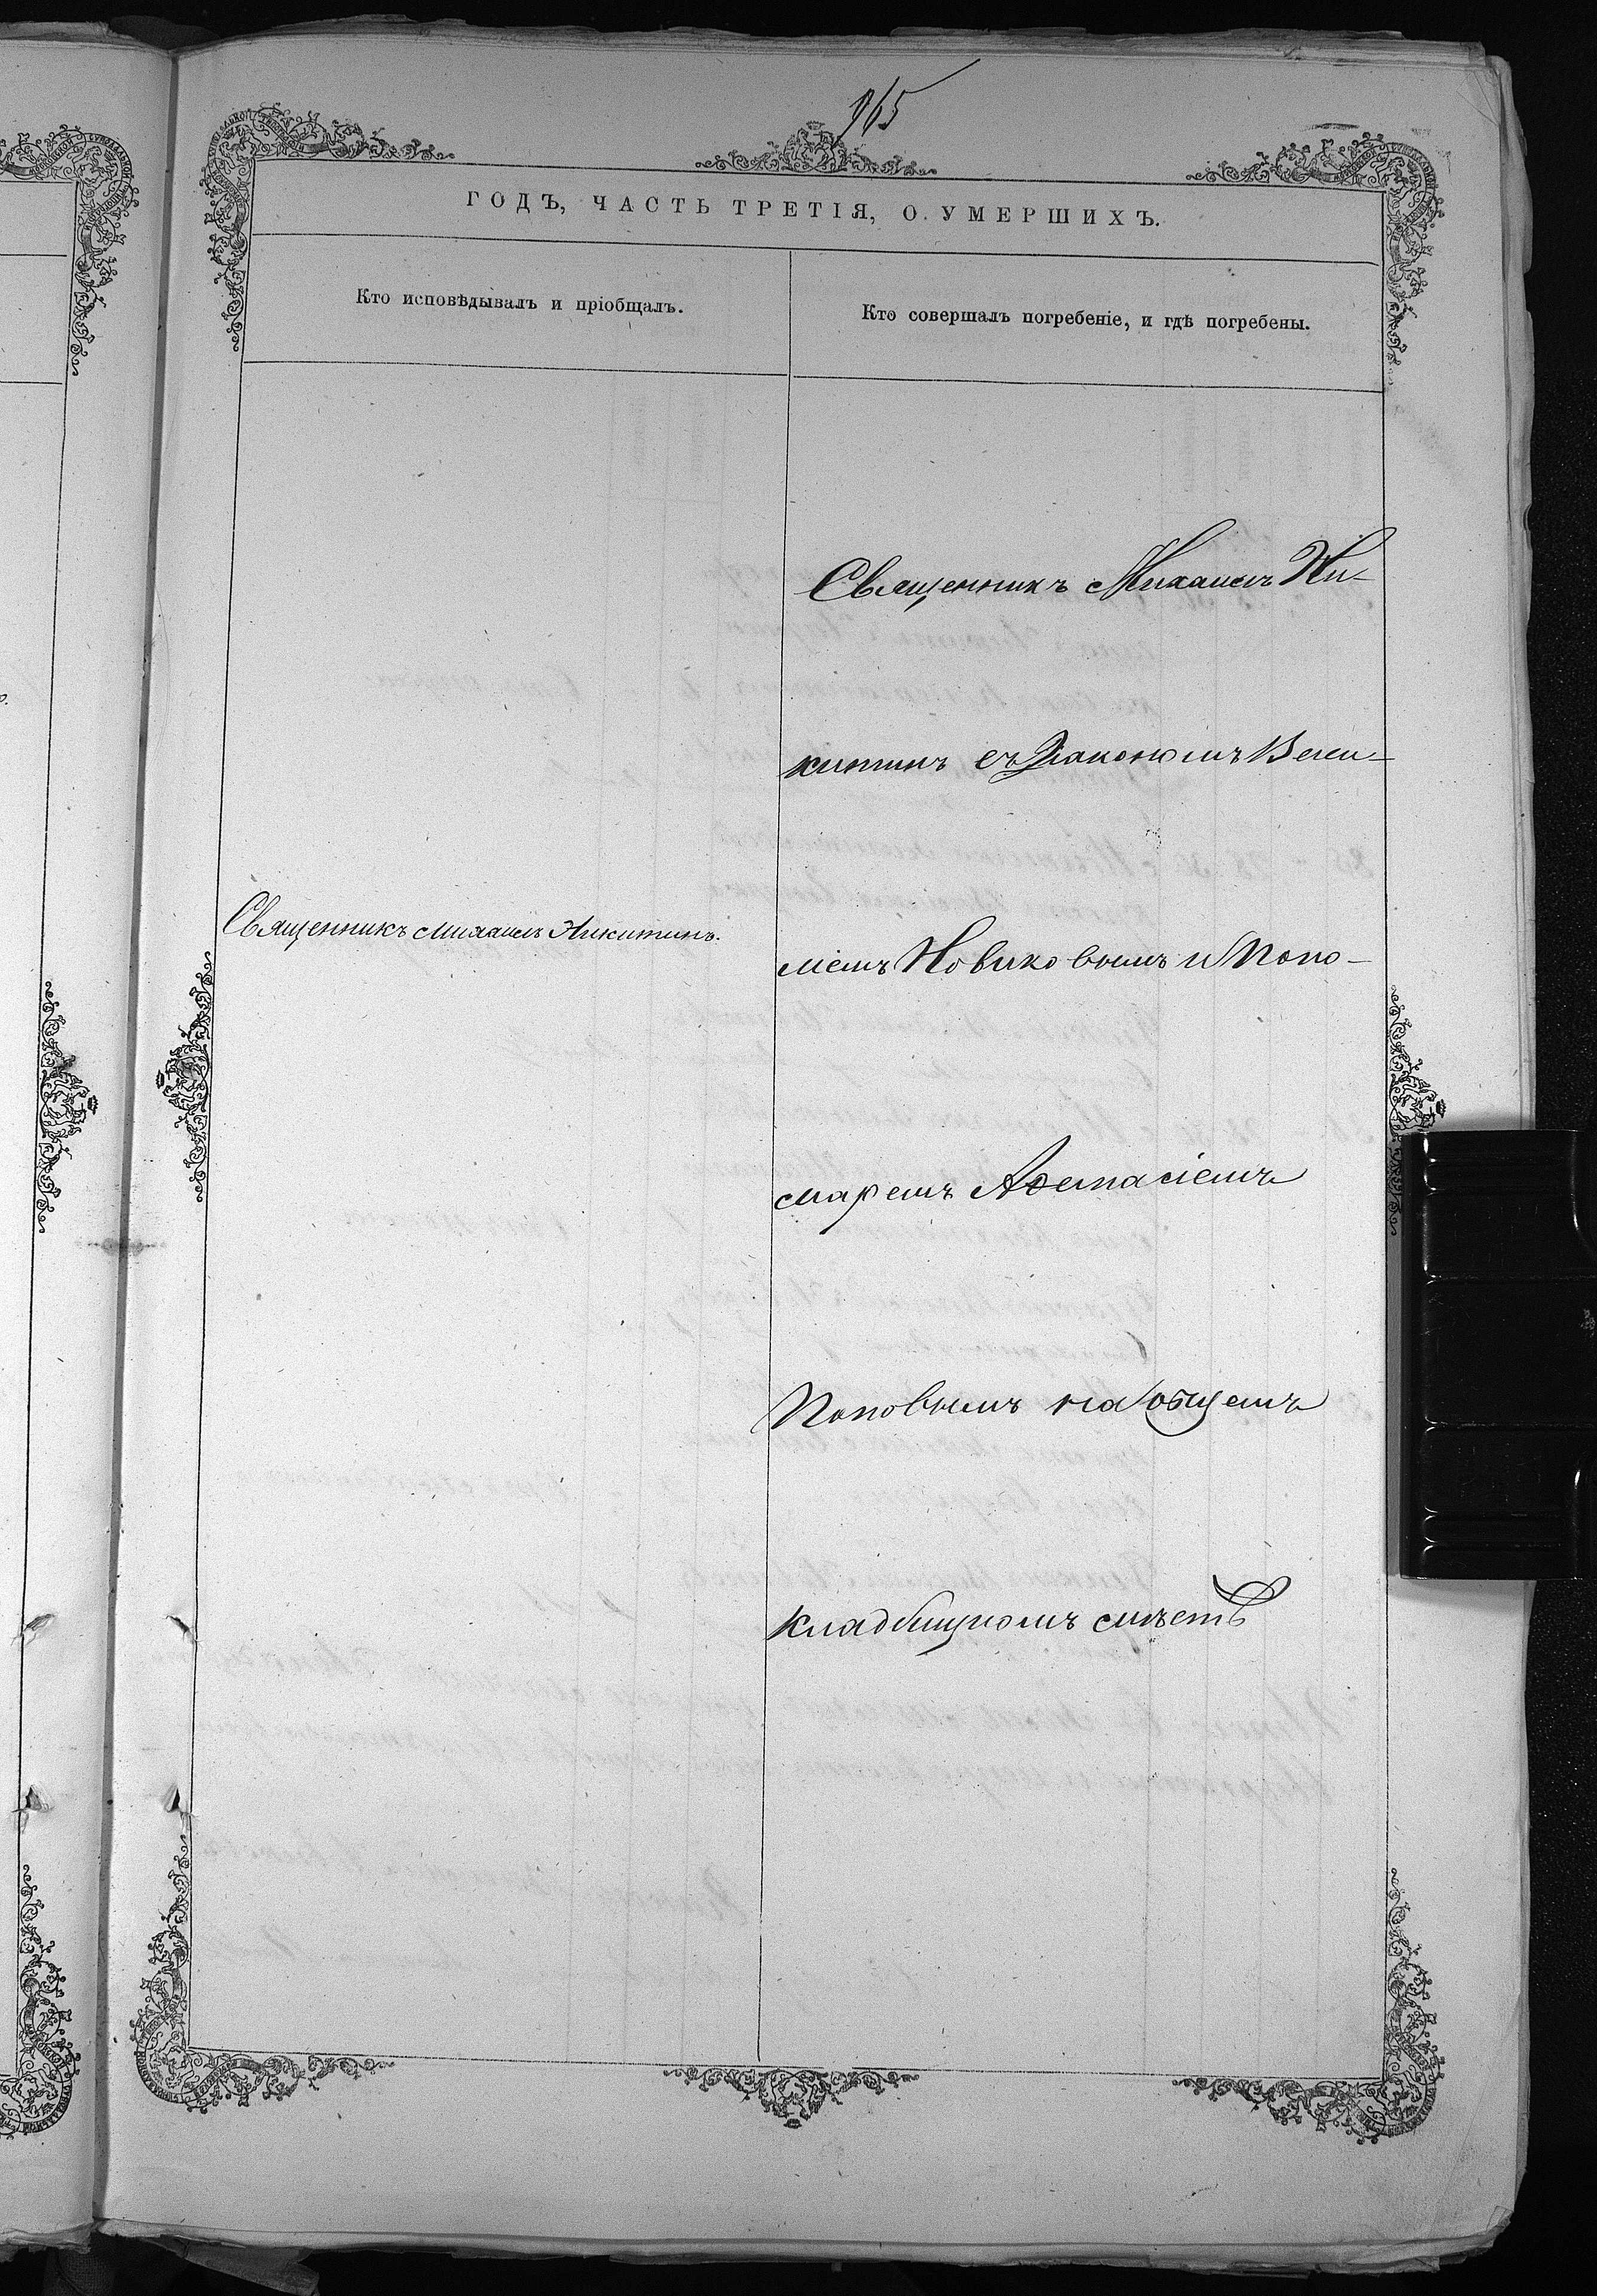 965
ГОДЪ, ЧАСТЬ ТРЕТІЯ, О УМЕРШИХЪ.
Кто исповѣдывалъ и пріобщалъ.
Кто совершалъ погребеніе, и гдѣ погребены.
Священникъ Михаилъ Никитинъ.
Священникъ Михаилъ Ни-
китинъ съ Діакономъ
Новиковымъ и Поно-
маремъ
Поповымъ на общемъ
кладбищномъ мѣстѣ